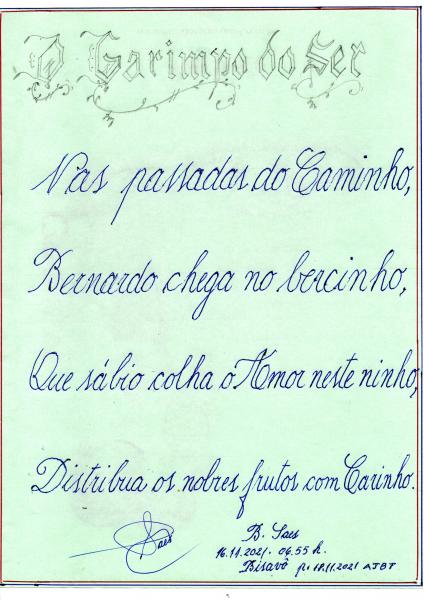 O Garimpo do Ser
Nas passadas do Caminho,
Bernardo chega no bercinho,
Que sábio colha o Amor neste ninho,
Distribua os nobres frutos com Carinho.
Saes
B. Saes
16.11.2021. 06.55 h.
Bisavô p. 18.11.2021 AJBT